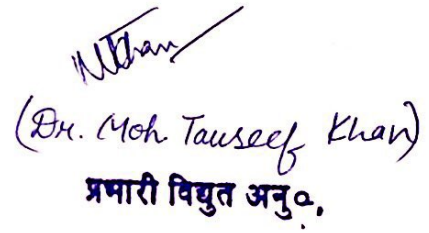 MTKhan
(Dr. Moh. Tauseef Khan)
प्रभारी विद्युत अनु०.